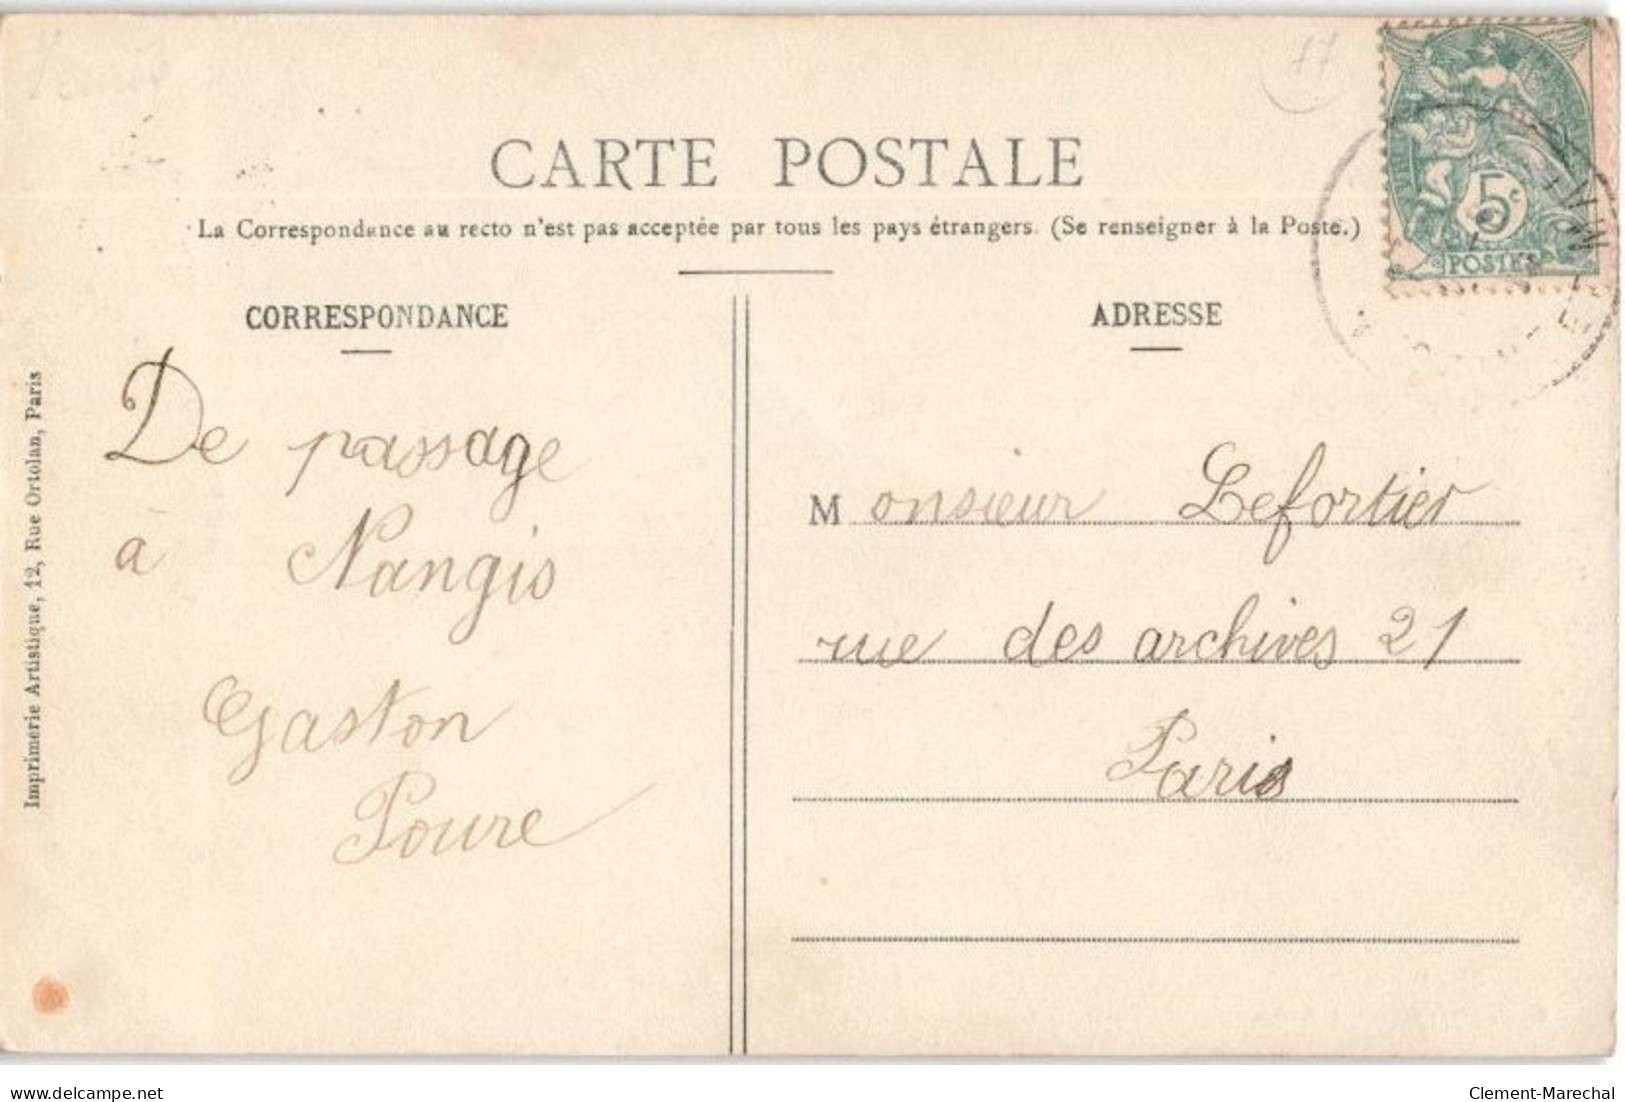 77
CARTE POSTALE
La Correspondance au recto n'est pas acceptée par tous les pays étrangers. (Se renseigner à la Poste.)
CORRESPONDANCE
De passage
à Nangis
Gaston
Poure
ADRESSE
Monsieur Lefortier
rue des archives 21
Paris
5c
POSTES
Imprimerie Artistique, 12, Rue Ortolan, Paris
delcampe.net
Clement-Marechal